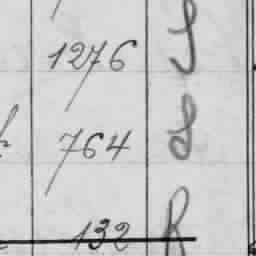 1276 S
764 S
132 R